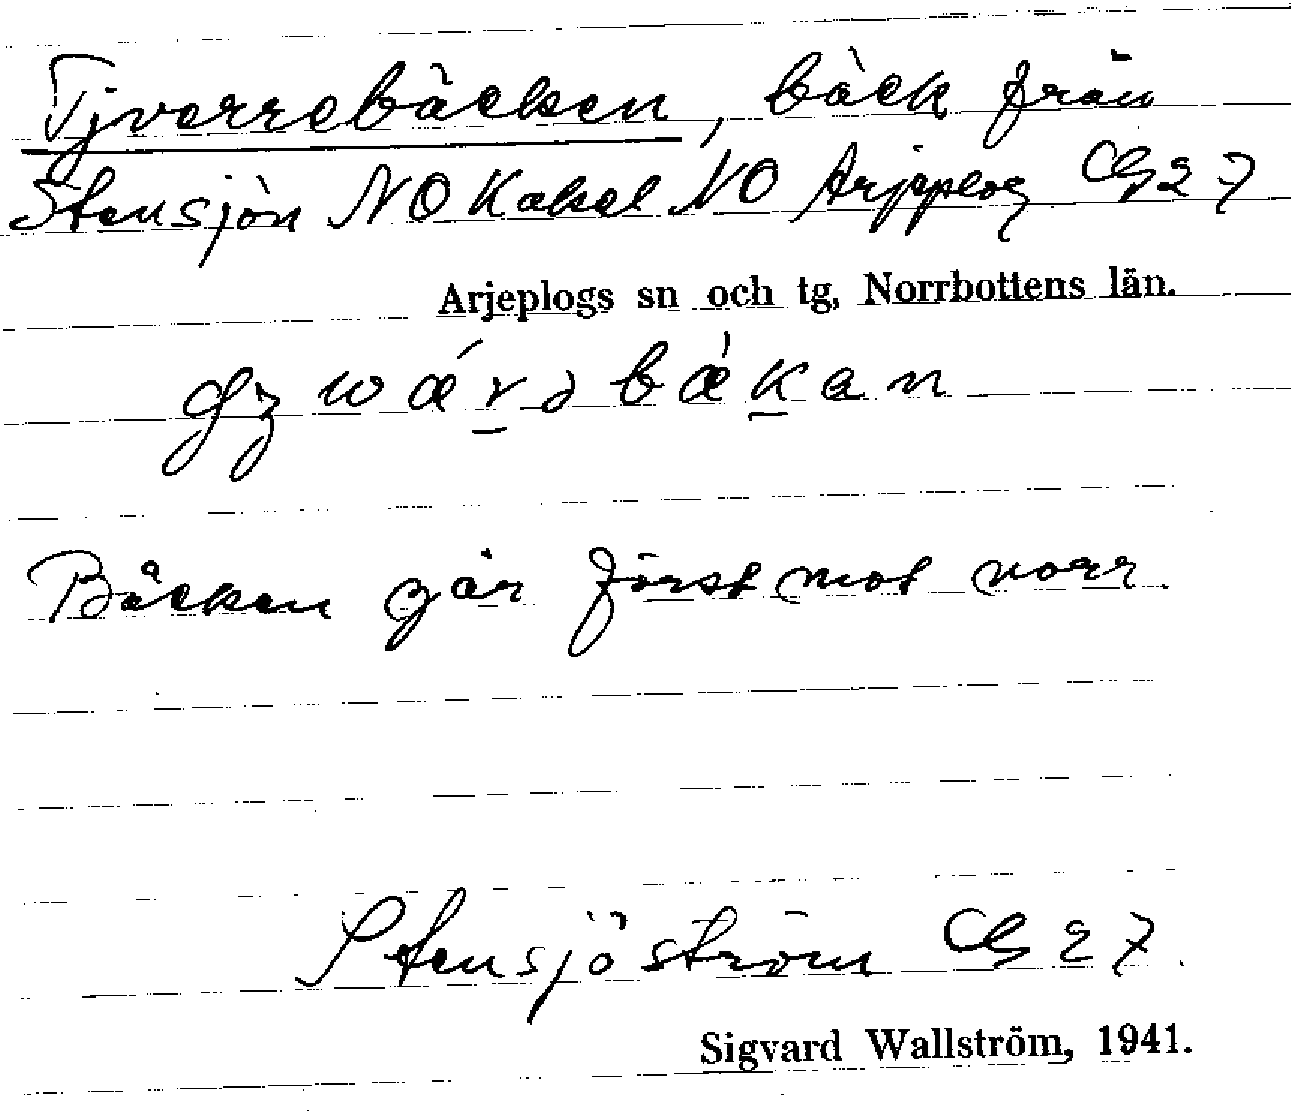 Tjverrebäcken, bäck från
Stensjön NO Kakel NO Arjeplog CG27
Arjeplogs sn och tg, Norrbottens län.
Bäcken går först mot norr.
Stensjöström CG27.
Sigvard Wallström, 1941.